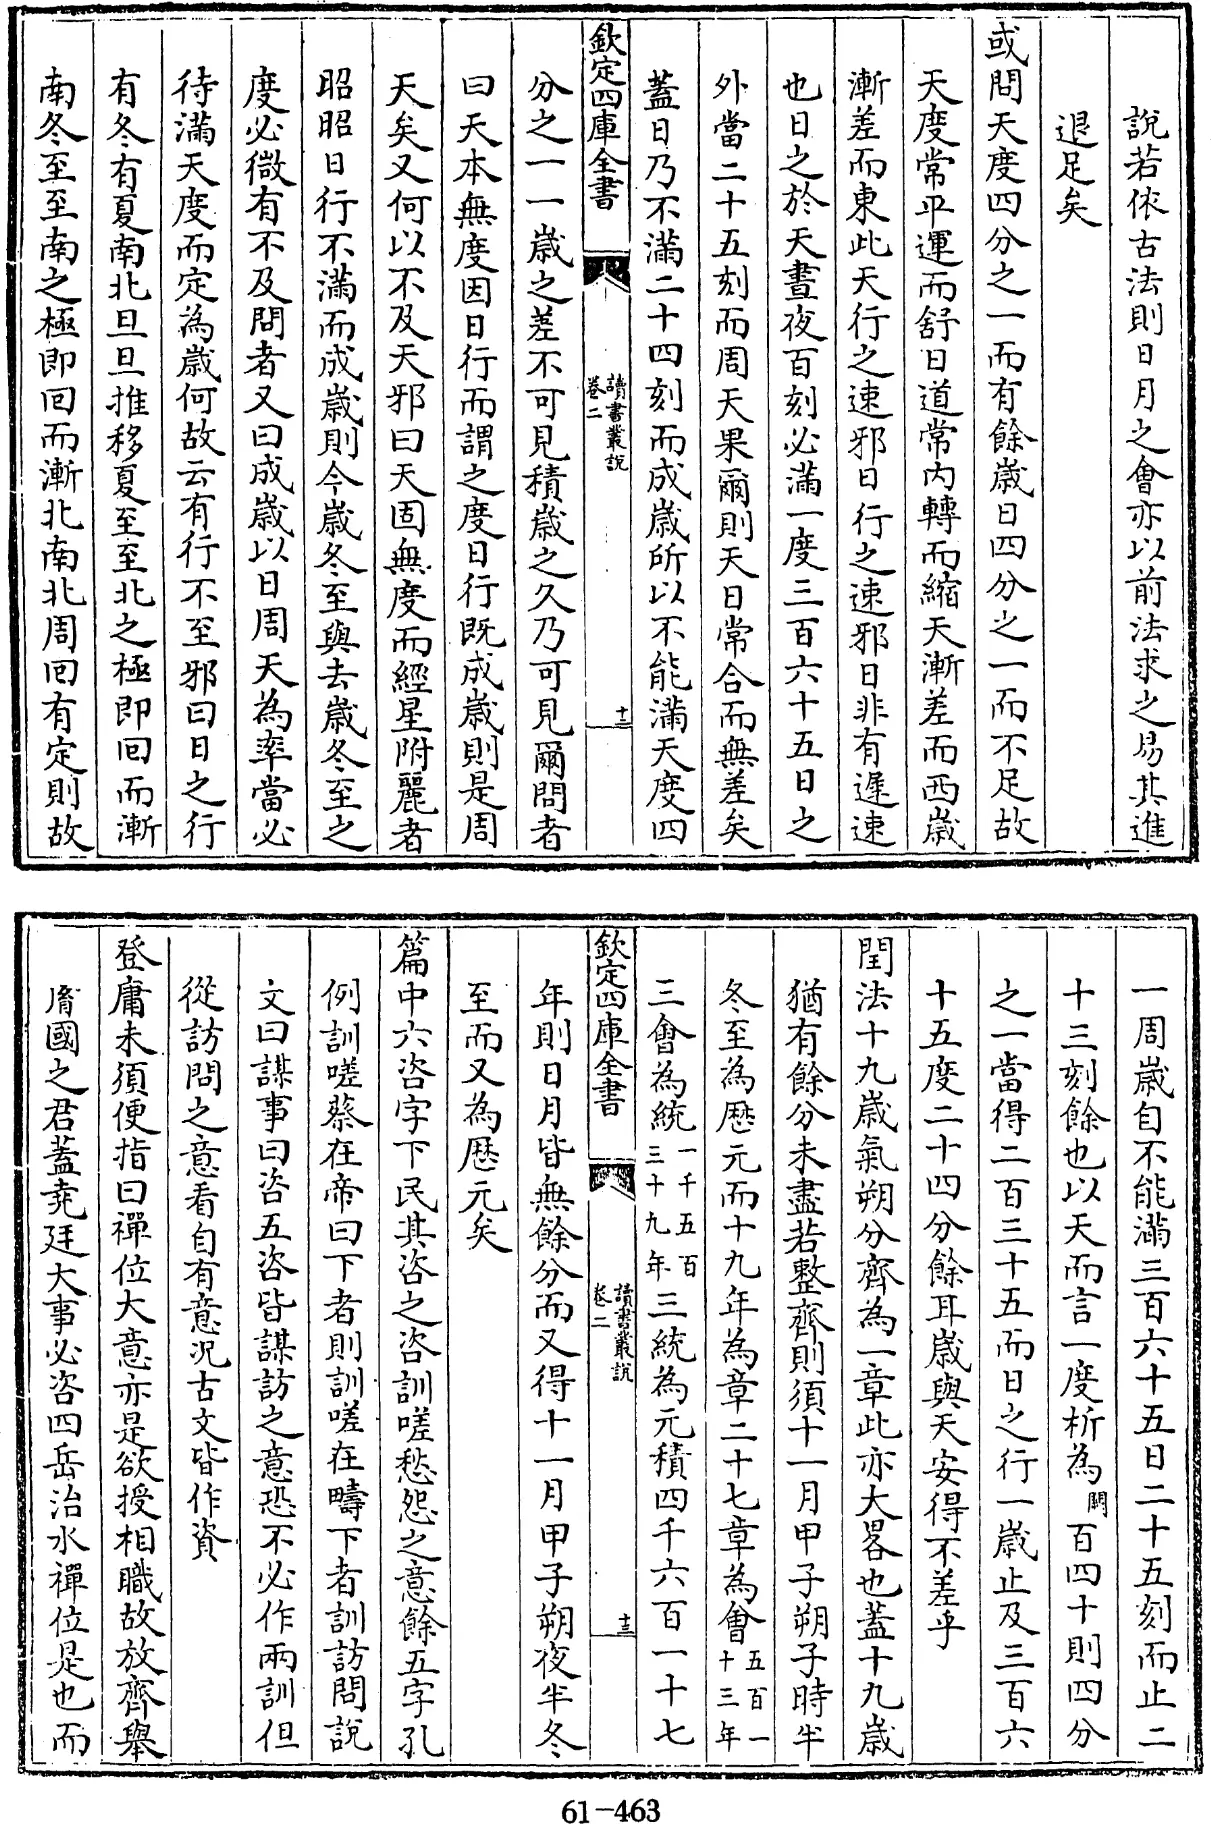 說若依古法則日月之會亦以前法求之易其進
退足矣
或問天度四分之一而有餘歲日四分之一而不足故
天度常平運而舒日道常內轉而縮天漸差而西歲
漸差而東此天行之速邪日行之速邪日非有遲速
也日之於天晝夜百刻必滿一度三百六十五日之
外當二十五刻而周天果爾則天日常合而無差矣
蓋日乃不滿二十四刻而成歲所以不能滿天度四
欽定四庫全書
讀書叢說
卷二
十二
分之一一歲之差不可見積歲之久乃可見爾問者
曰天本無度因日行而謂之度日行既成歲則是周
天矣又何以不及天邪曰天固無度而經星附麗者
昭昭日行不滿而成歲則今歲冬至與去歲冬至之
度必微有不及問者又曰成歲以日周天為率當必
待滿天度而定為歲何故云有行不至邪曰日之行
有冬有夏南北旦旦推移夏至至北之極即囘而漸
南冬至至南之極即囘而漸北南北周囘有定則故
一周歲自不能滿三百六十五日二十五刻而止二
十三刻餘也以天而言一度析為闕百四十則四分
之一當得二百三十五而日之行一歲止及三百六
十五度二十四分餘耳歲與天安得不差乎
閏法十九歲氣朔分齊為一章此亦大畧也蓋十九歲
猶有餘分未盡若整齊則須十一月甲子朔子時半
冬至為厯元而十九年為章二十七章為會五百一十三年
三會為統一千五百三十九年三統為元積四千六百一十七
欽定四庫全書
讀書叢說
卷二
十三
年則日月皆無餘分而又得十一月甲子朔夜半冬
至而又為厯元矣
篇中六咨字下民其咨之咨訓嗟愁怨之意餘五字孔
例訓嗟蔡在帝曰下者則訓嗟在疇下者訓訪問說
文曰謀事曰咨五咨皆謀訪之意恐不必作兩訓但
從訪問之意看自有意況古文皆作資
登庸未須便指曰禪位大意亦是欲授相職故放齊舉
胤國之君蓋堯廷大事必咨四岳治水禪位是也而
61-463